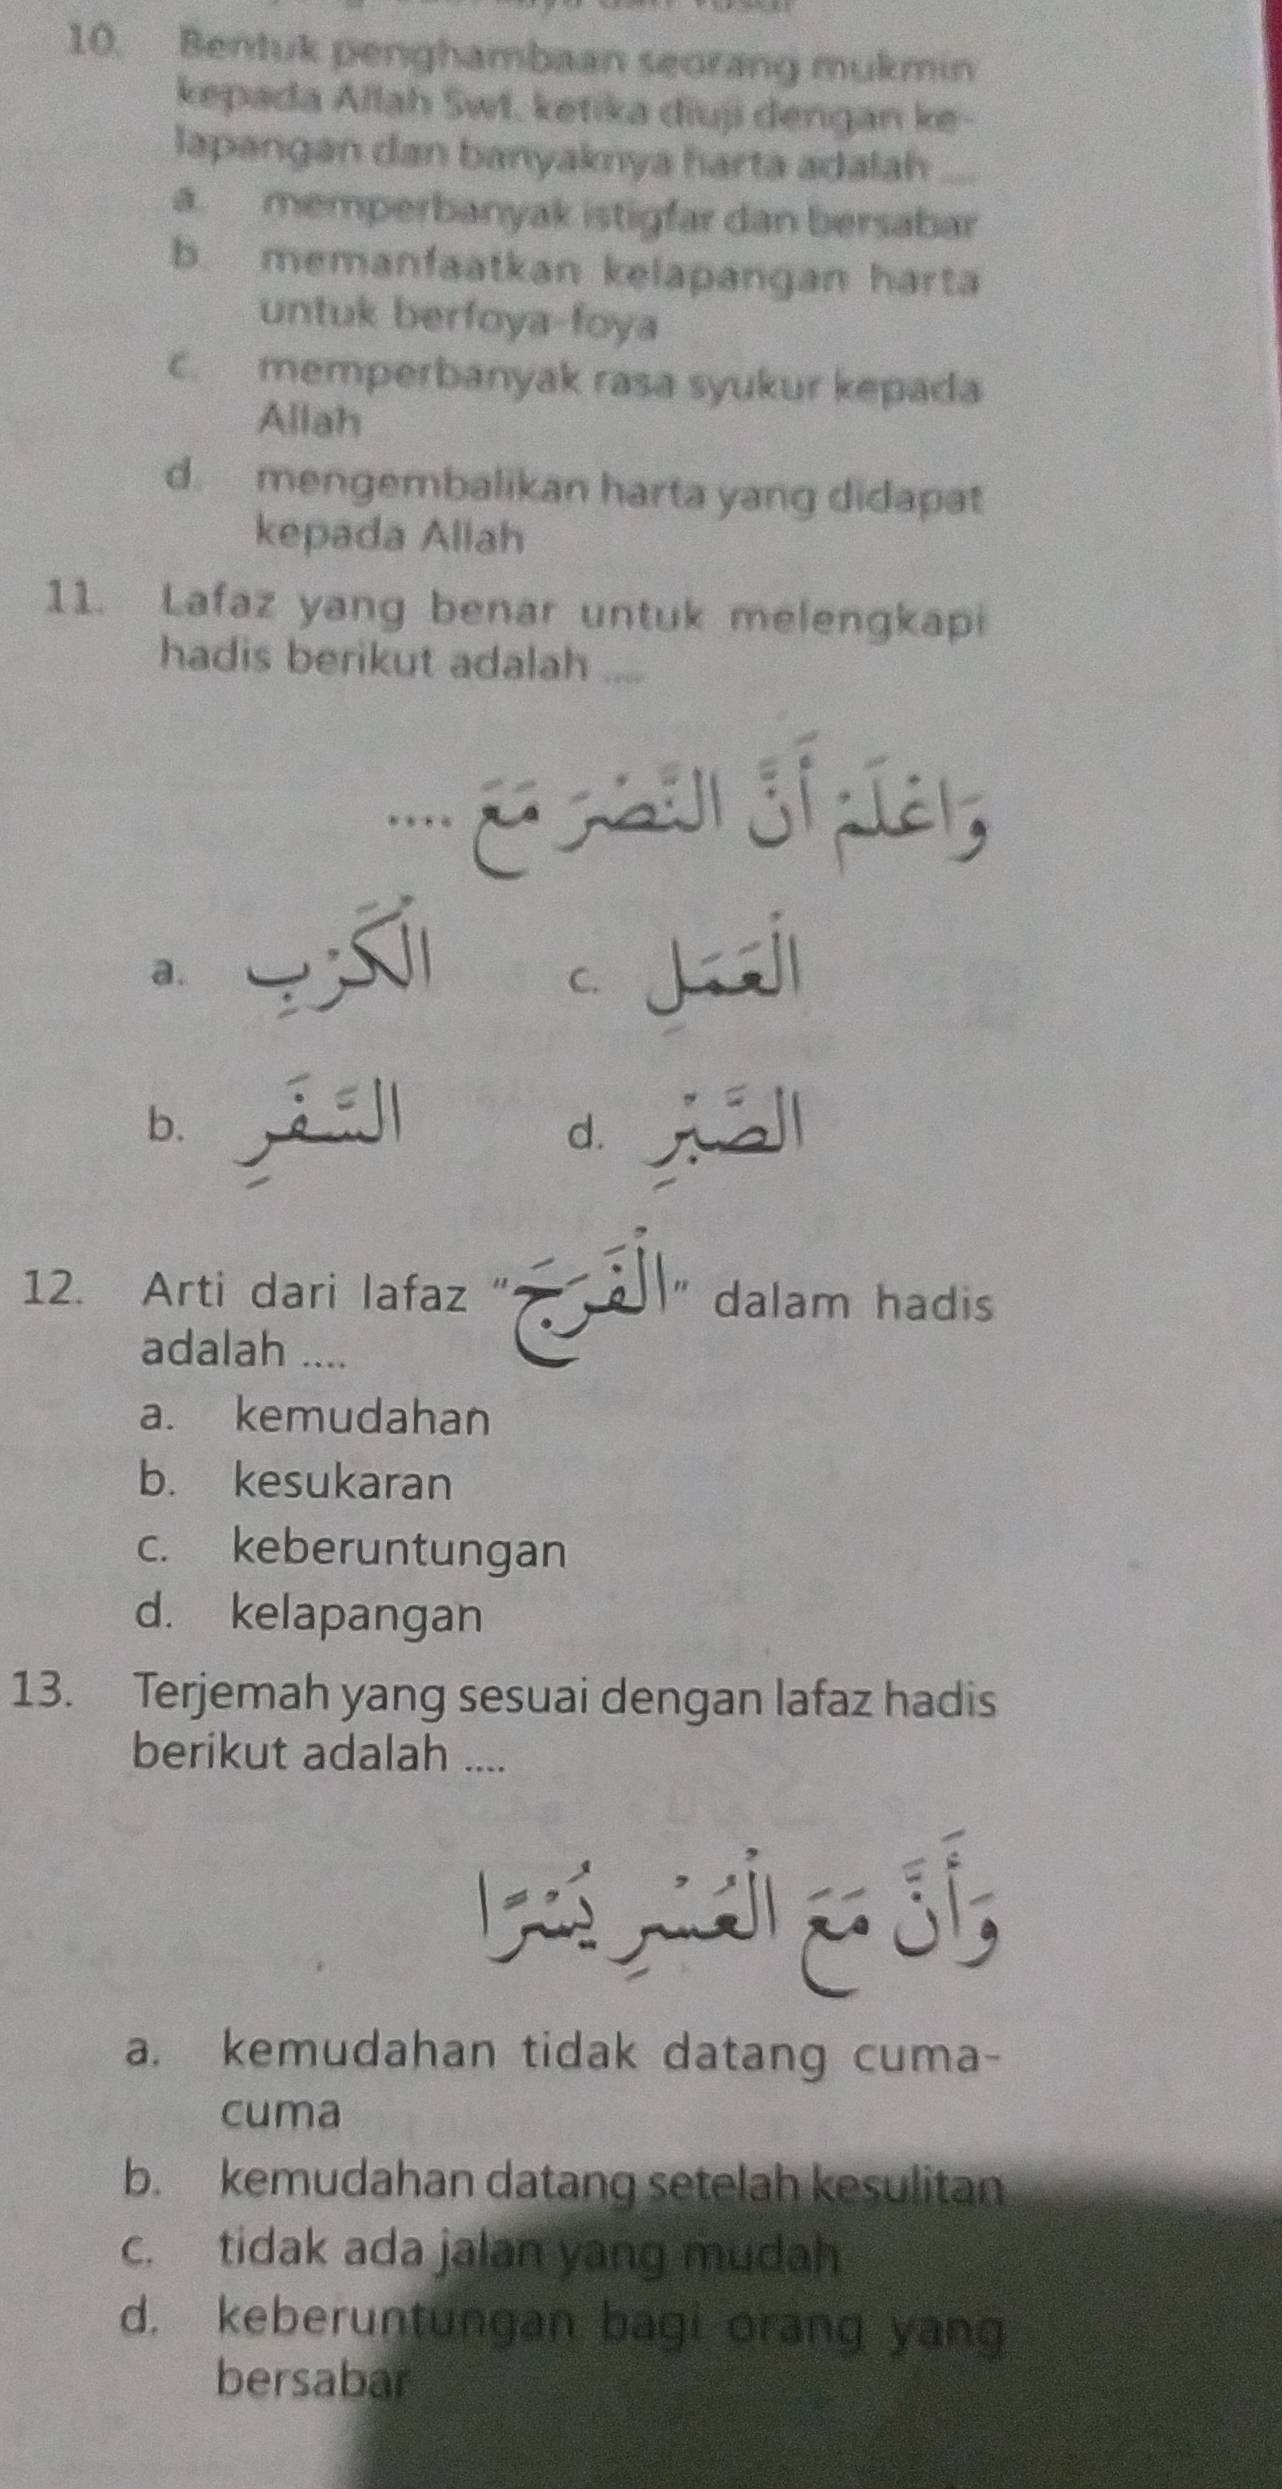 10. Bentuk penghambaan seorang mukmin
kepada Allah Swt. ketika diuji dengan ke-
lapangan dan banyaknya harta adalah ....
a. memperbanyak istigfar dan bersabar
b. memanfaatkan kelapangan harta
untuk berfoya-foya
c. memperbanyak rasa syukur kepada
Allah
d. mengembalikan harta yang didapat
kepada Allah
11. Lafaz yang benar untuk melengkapi
hadis berikut adalah ....
وَاعْلَمْ أَنَّ النَّصْرَ مَعَ ....
a. الْكَرْبِ c. الْعَمَلِ
b. السَّفَرِ d. الصَّبْرِ
12. Arti dari lafaz "الْفَرَجَ" dalam hadis
adalah ....
a. kemudahan
b. kesukaran
c. keberuntungan
d. kelapangan
13. Terjemah yang sesuai dengan lafaz hadis
berikut adalah ....
وَأَنَّ مَعَ الْعُسْرِ يُسْرًا
a. kemudahan tidak datang cuma-
cuma
b. kemudahan datang setelah kesulitan
c. tidak ada jalan yang mudah
d. keberuntungan bagi orang yang
bersabar